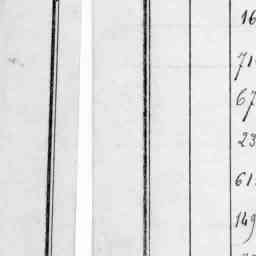 16
71
67
23
61.
149